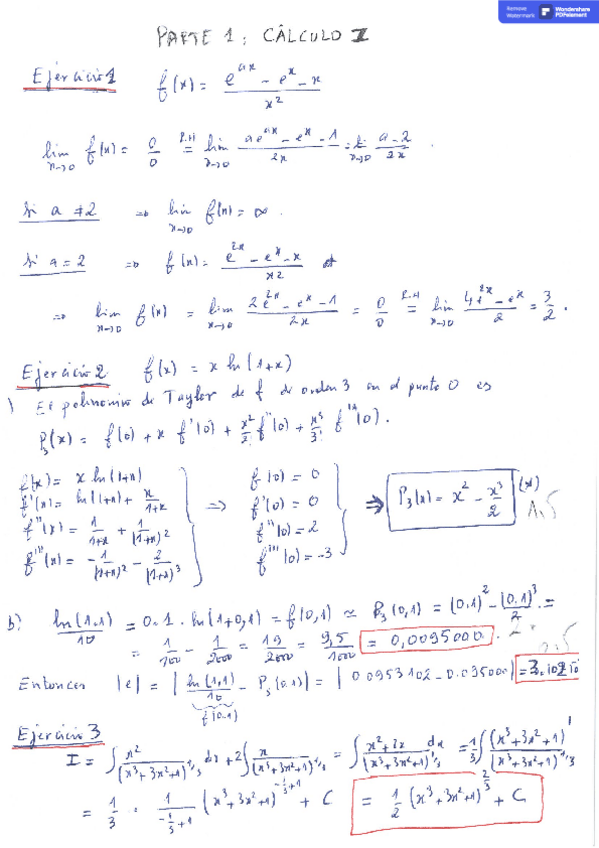 Remove Watermark Wondershare PDFelement
PARTE 1: CÁLCULO I
Ejercicio 1 f(x) = (e^{ax} - e^x - x)/x^2
lim_{x→0} f(x) = 0/0 =^{L'H} lim_{x→0} (ae^{ax} - e^x - 1)/2x = lim_{x→0} (a-2)/2x .
Si a ≠ 2 ⇒ lim_{x→0} f(x) = ∞.
Si a = 2 ⇒ f(x) = (e^{2x} - e^x - x)/x^2
⇒ lim_{x→0} f(x) = lim_{x→0} (2e^{2x} - e^x - 1)/2x = 0/0 =^{L'H} lim_{x→0} (4e^{2x} - e^x)/2 = 3/2 .
Ejercicio 2 f(x) = x ln(1+x)
) El polinomio de Taylor de f de orden 3 en el punto 0 es
P_3(x) = f(0) + x f'(0) + x^2/2 f''(0) + x^3/3! f'''(0).
f(x) = x ln(1+x) f(0) = 0
f'(x) = ln(1+x) + x/(1+x) ⇒ f'(0) = 0 ⇒ P_3(x) = x^2 - x^3/2 (*)
f''(x) = 1/(1+x) + 1/(1+x)^2 f''(0) = 2
f'''(x) = -1/(1+x)^2 - 2/(1+x)^3 f'''(0) = -3
1.5
b) ln(1.1)/10 = 0.1 · ln(1+0,1) = f(0,1) ≃ P_3(0,1) = (0.1)^2 - (0.1)^3/2 =
= 1/100 - 1/2000 = 19/2000 = 9,5/1000 = 0,0095000.
Entonces |e| = | ln(1,1)/10 - P_3(0.1)| = | 0.0953102 - 0.095000| =
f(0.1)
Ejercicio 3
I = ∫ x^2/(x^3+3x^2+1)^{1/3} dx + 2∫ x/(x^3+3x^2+1)^{1/3} = ∫ (x^2+2x)/(x^3+3x^2+1)^{1/3} dx = 1/3 ∫ (x^3+3x^2+1)'/(x^3+3x^2+1)^{1/3}
= 1/3 · 1/(-1/3+1) (x^3+3x^2+1)^{-1/3+1} + C = 1/2 (x^3+3x^2+1)^{2/3} + C